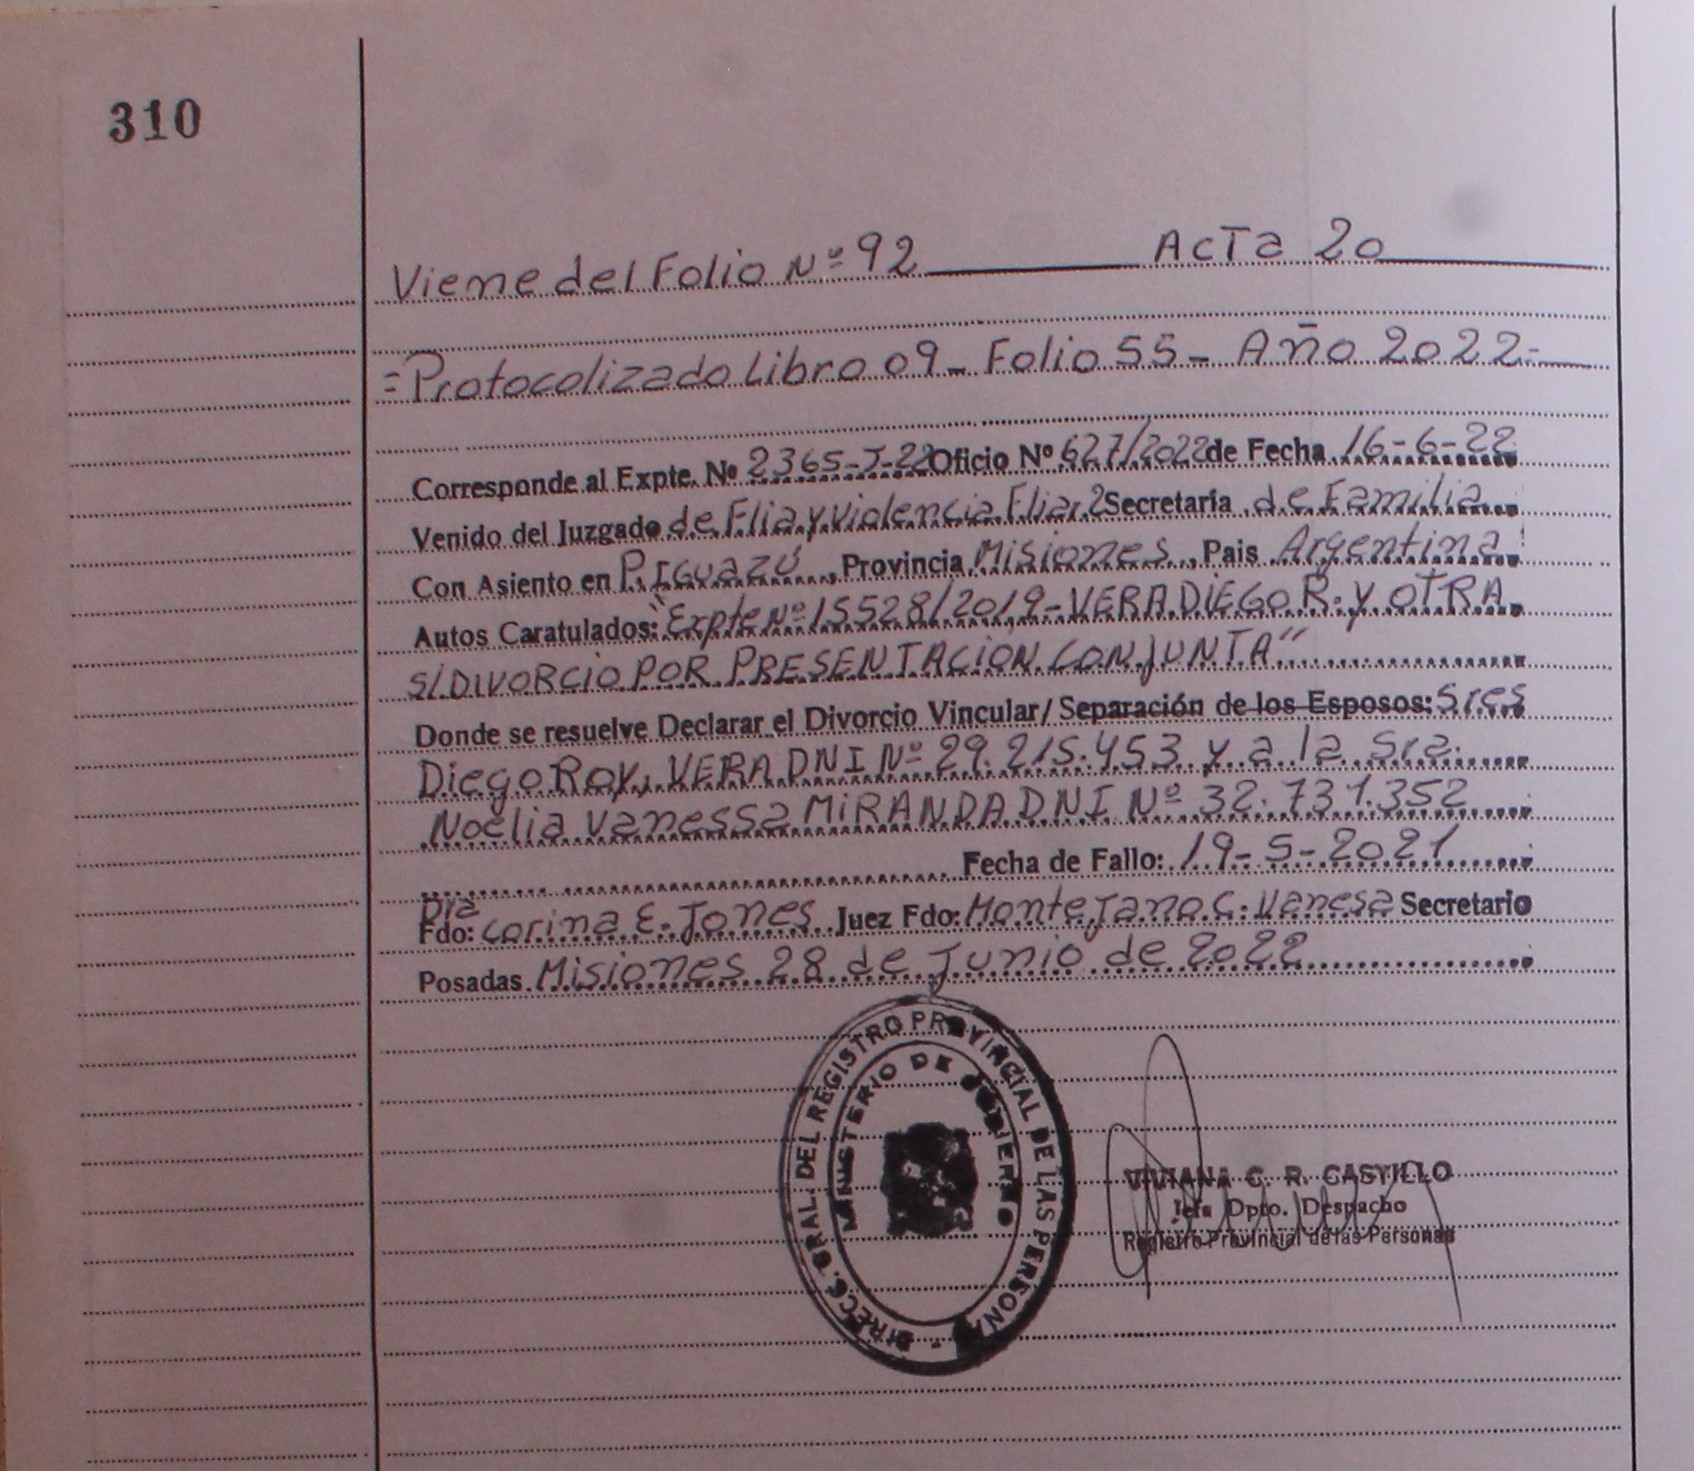 310
Viene del Folio Nº 92 Acta 20
=Protocolizado Libro 09_ Folio 55_ Año 2022=
Corresponde al Expte. Nº 2365-J-22 Oficio Nº 627/2022 de Fecha 16-6-22
Venido del Juzgado de Flia y Violencia Fliar. 2 Secretaría de Familia
Con Asiento en P. IGUAZÚ, Provincia Misiones, Pais Argentina
Autos Caratulados: "Expte Nº 15528/2019-VERA DIEGO R. Y OTRA
S/DIVORCIO POR PRESENTACIÓN CONJUNTA"
Donde se resuelve Declarar el Divorcio Vincular/ Separación de los Esposos: Sres
Diego Roy, VERA DNI Nº 29.215.453 y a la Sra.
Noelia Vanessa MIRANDA DNI Nº 32.731.352
Fecha de Fallo: 19-5-2021
Dra
Fdo: Corina E. Jones Juez Fdo: Montejano C. Vanesa Secretario
Posadas Misiones 28 de Junio de 2022
DIREC. GRAL. DEL REGISTRO PROVINCIAL DE LAS PERSONAS
MINISTERIO DE GOBIERNO
VIVIANA C. R. CASTILLO
Jefa Dpto. Despacho
Registro Provincial de las Personas